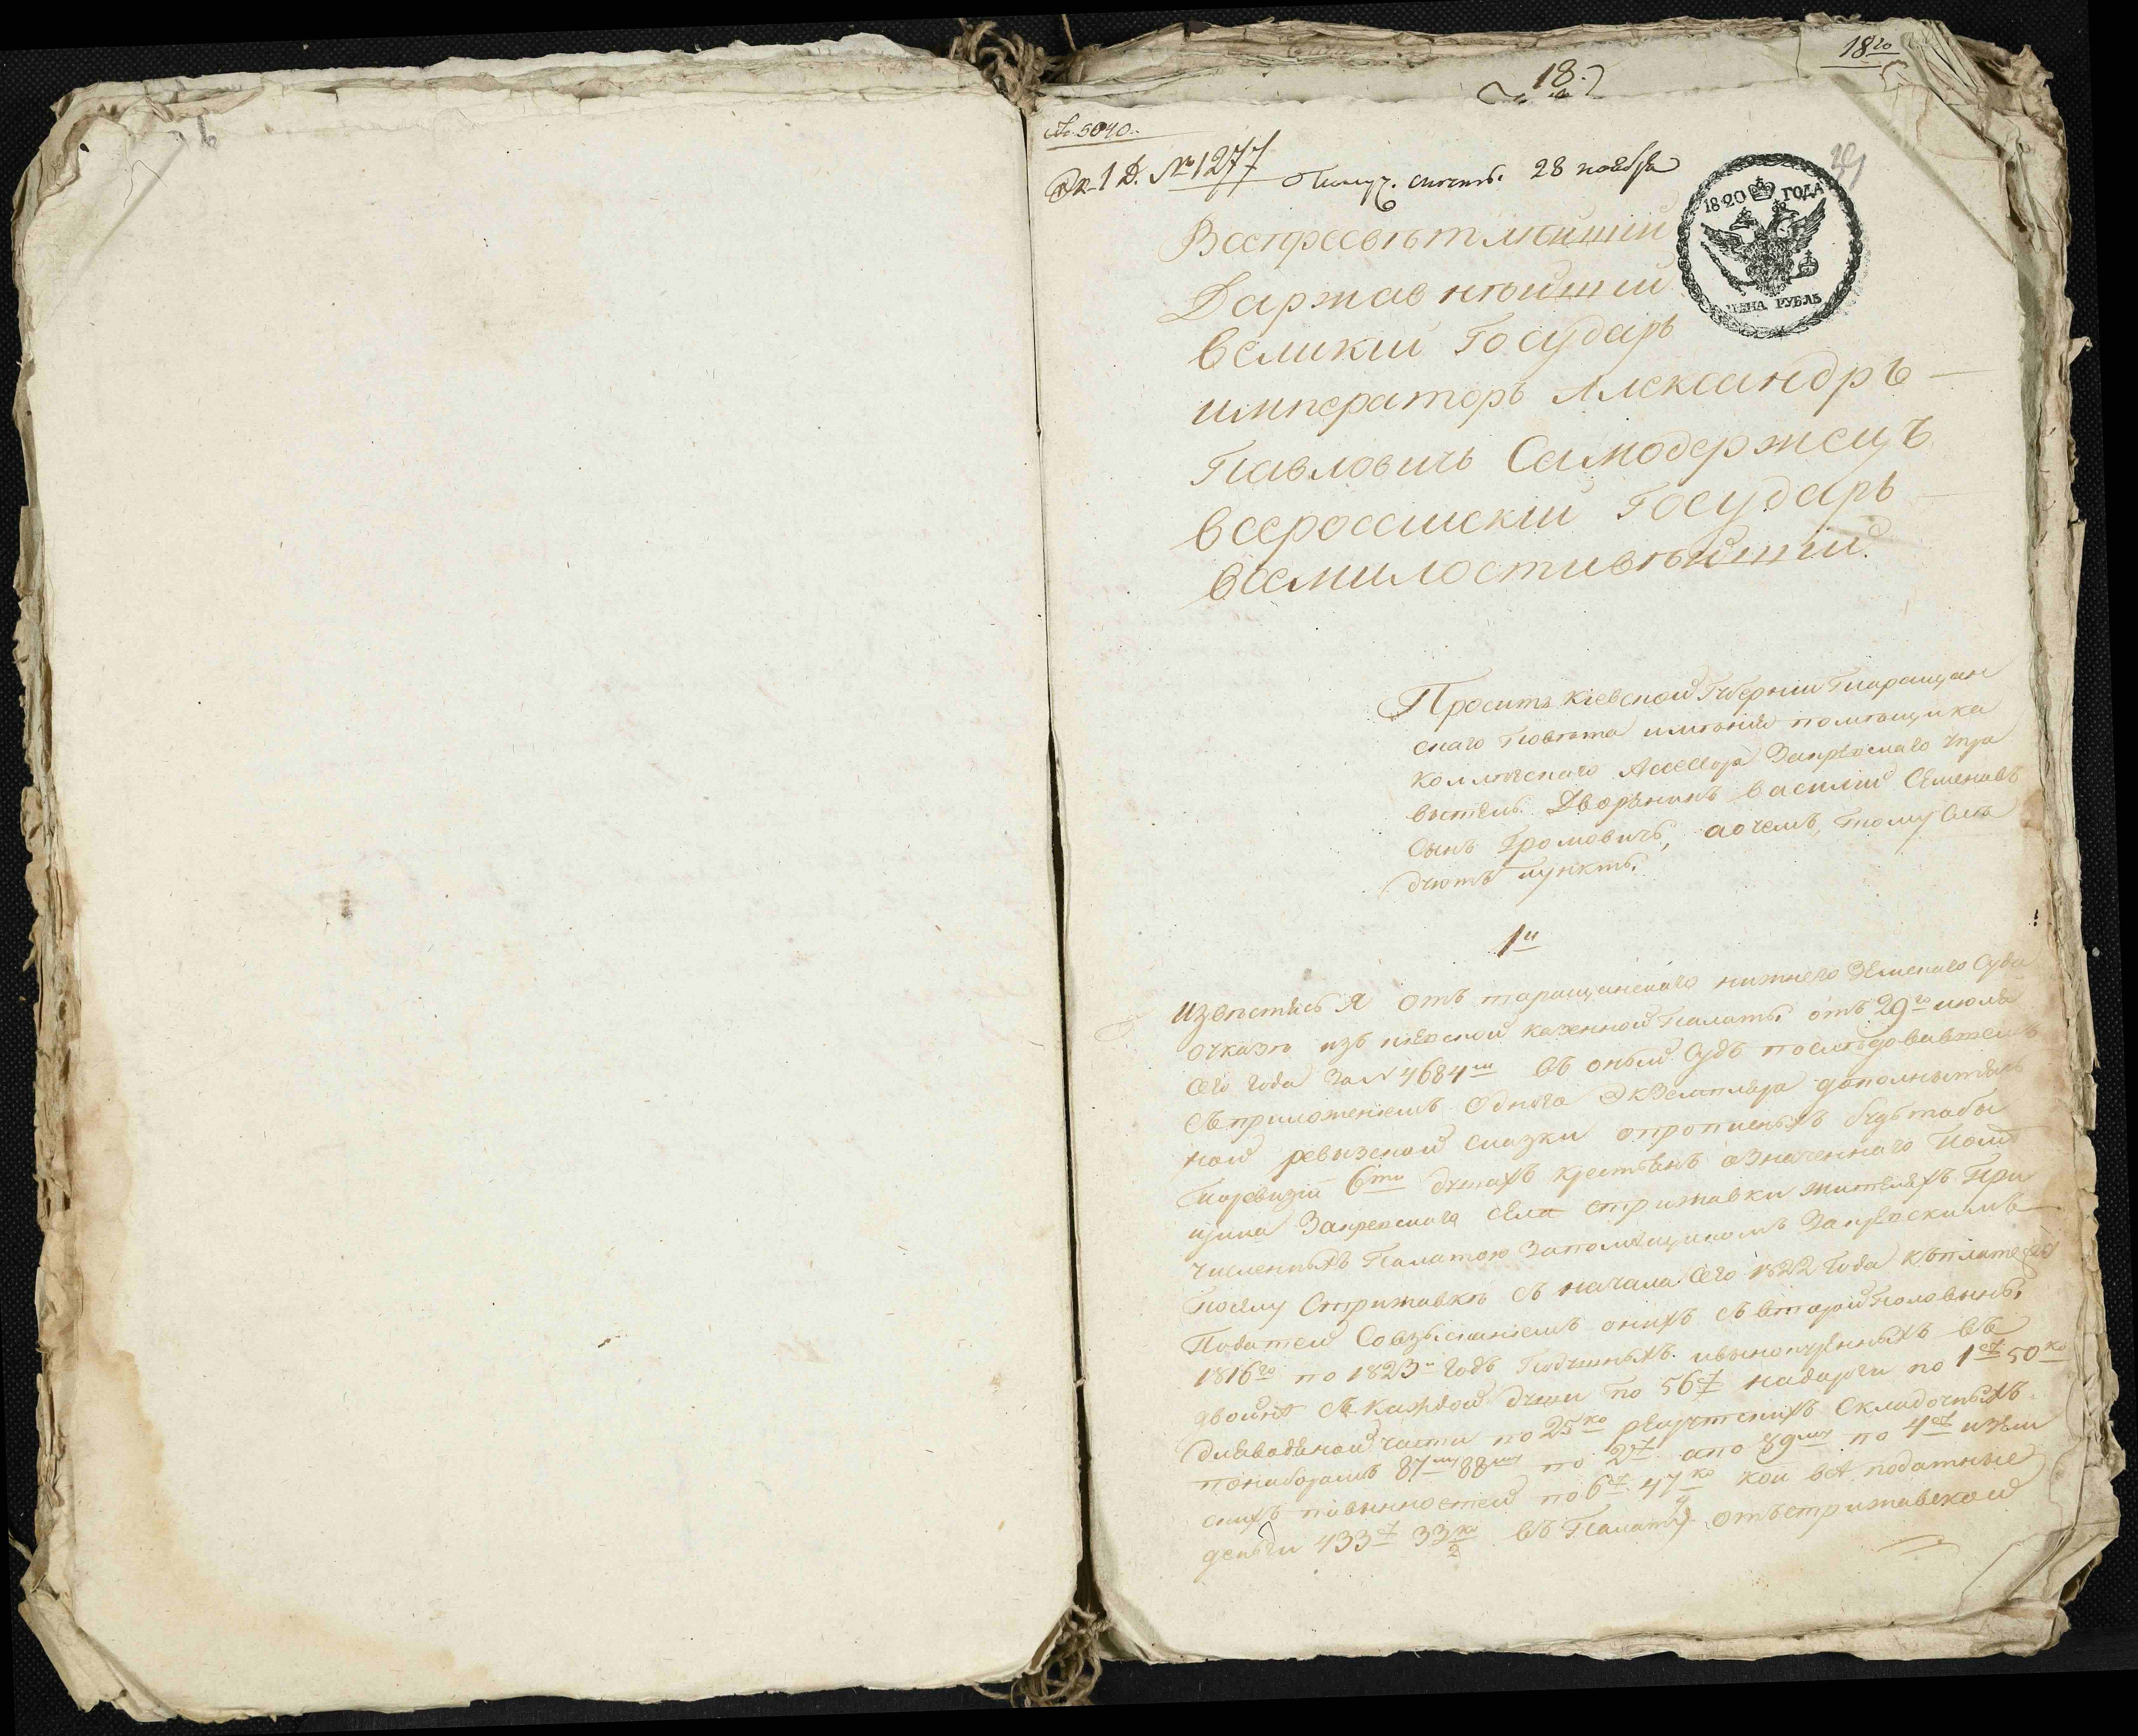 18.
18го
№ 5040.
1 Д. № 1277
Получ. 28 ноября
1820 ГОДА
ЦЕНА РУБЛЬ
Всепресветлейший
Даржавнѣйший
великий Государь
императоръ Александръ
Павловичь Самодержецъ
всероссииский Государь
всемилостивѣйший.
Проситъ киевской Губернии Таращан
скаго Повѣта имѣния помѣщика
коллежскаго Асессора Запрѣскаго упра
витель Дворянинъ василий Семеновъ
Сынъ Громовичъ, а о чемъ, тому Слѣ
дуютъ пункты.
1й
Извѣстясь я отъ таращанскаго нижнего Земскаго Суда
о указѣ изъ киевской казенной Палаты отъ 29го июля
Сего года За № 4684м въ оный Судъ последовавшемъ
Съ приложениемъ Одного Экземпляра дополнытель
ной ревизской сказки о прописныхъ будьтобы
По ревизии 6ти душахъ крестянъ означенного Помѣ
щика Запрѣскаго Села стрижавки жителяхъ При
численныхъ Палатою За помѣщикомъ Запрѣскимъ
по Селу Стрижавкѣ Съ начала Сего 1822 Года къ платежу
Податей Со взысканиемъ онихъ Съ второй половыны
1816го по 1823й годъ Подушныхъ въ
двойнѣ Съ каждой души по 56 р на дороги по 1 р 50 ко
части по 25 ко рекрутскихъ Складочныхъ
по наборамъ 87му 88му по 2 р а по 89му по 4 р и
скихъ повынностей по 6 р 47 ко кои всѣ податные
деньги 433 р 33 ко въ Палату отъ стрижавской